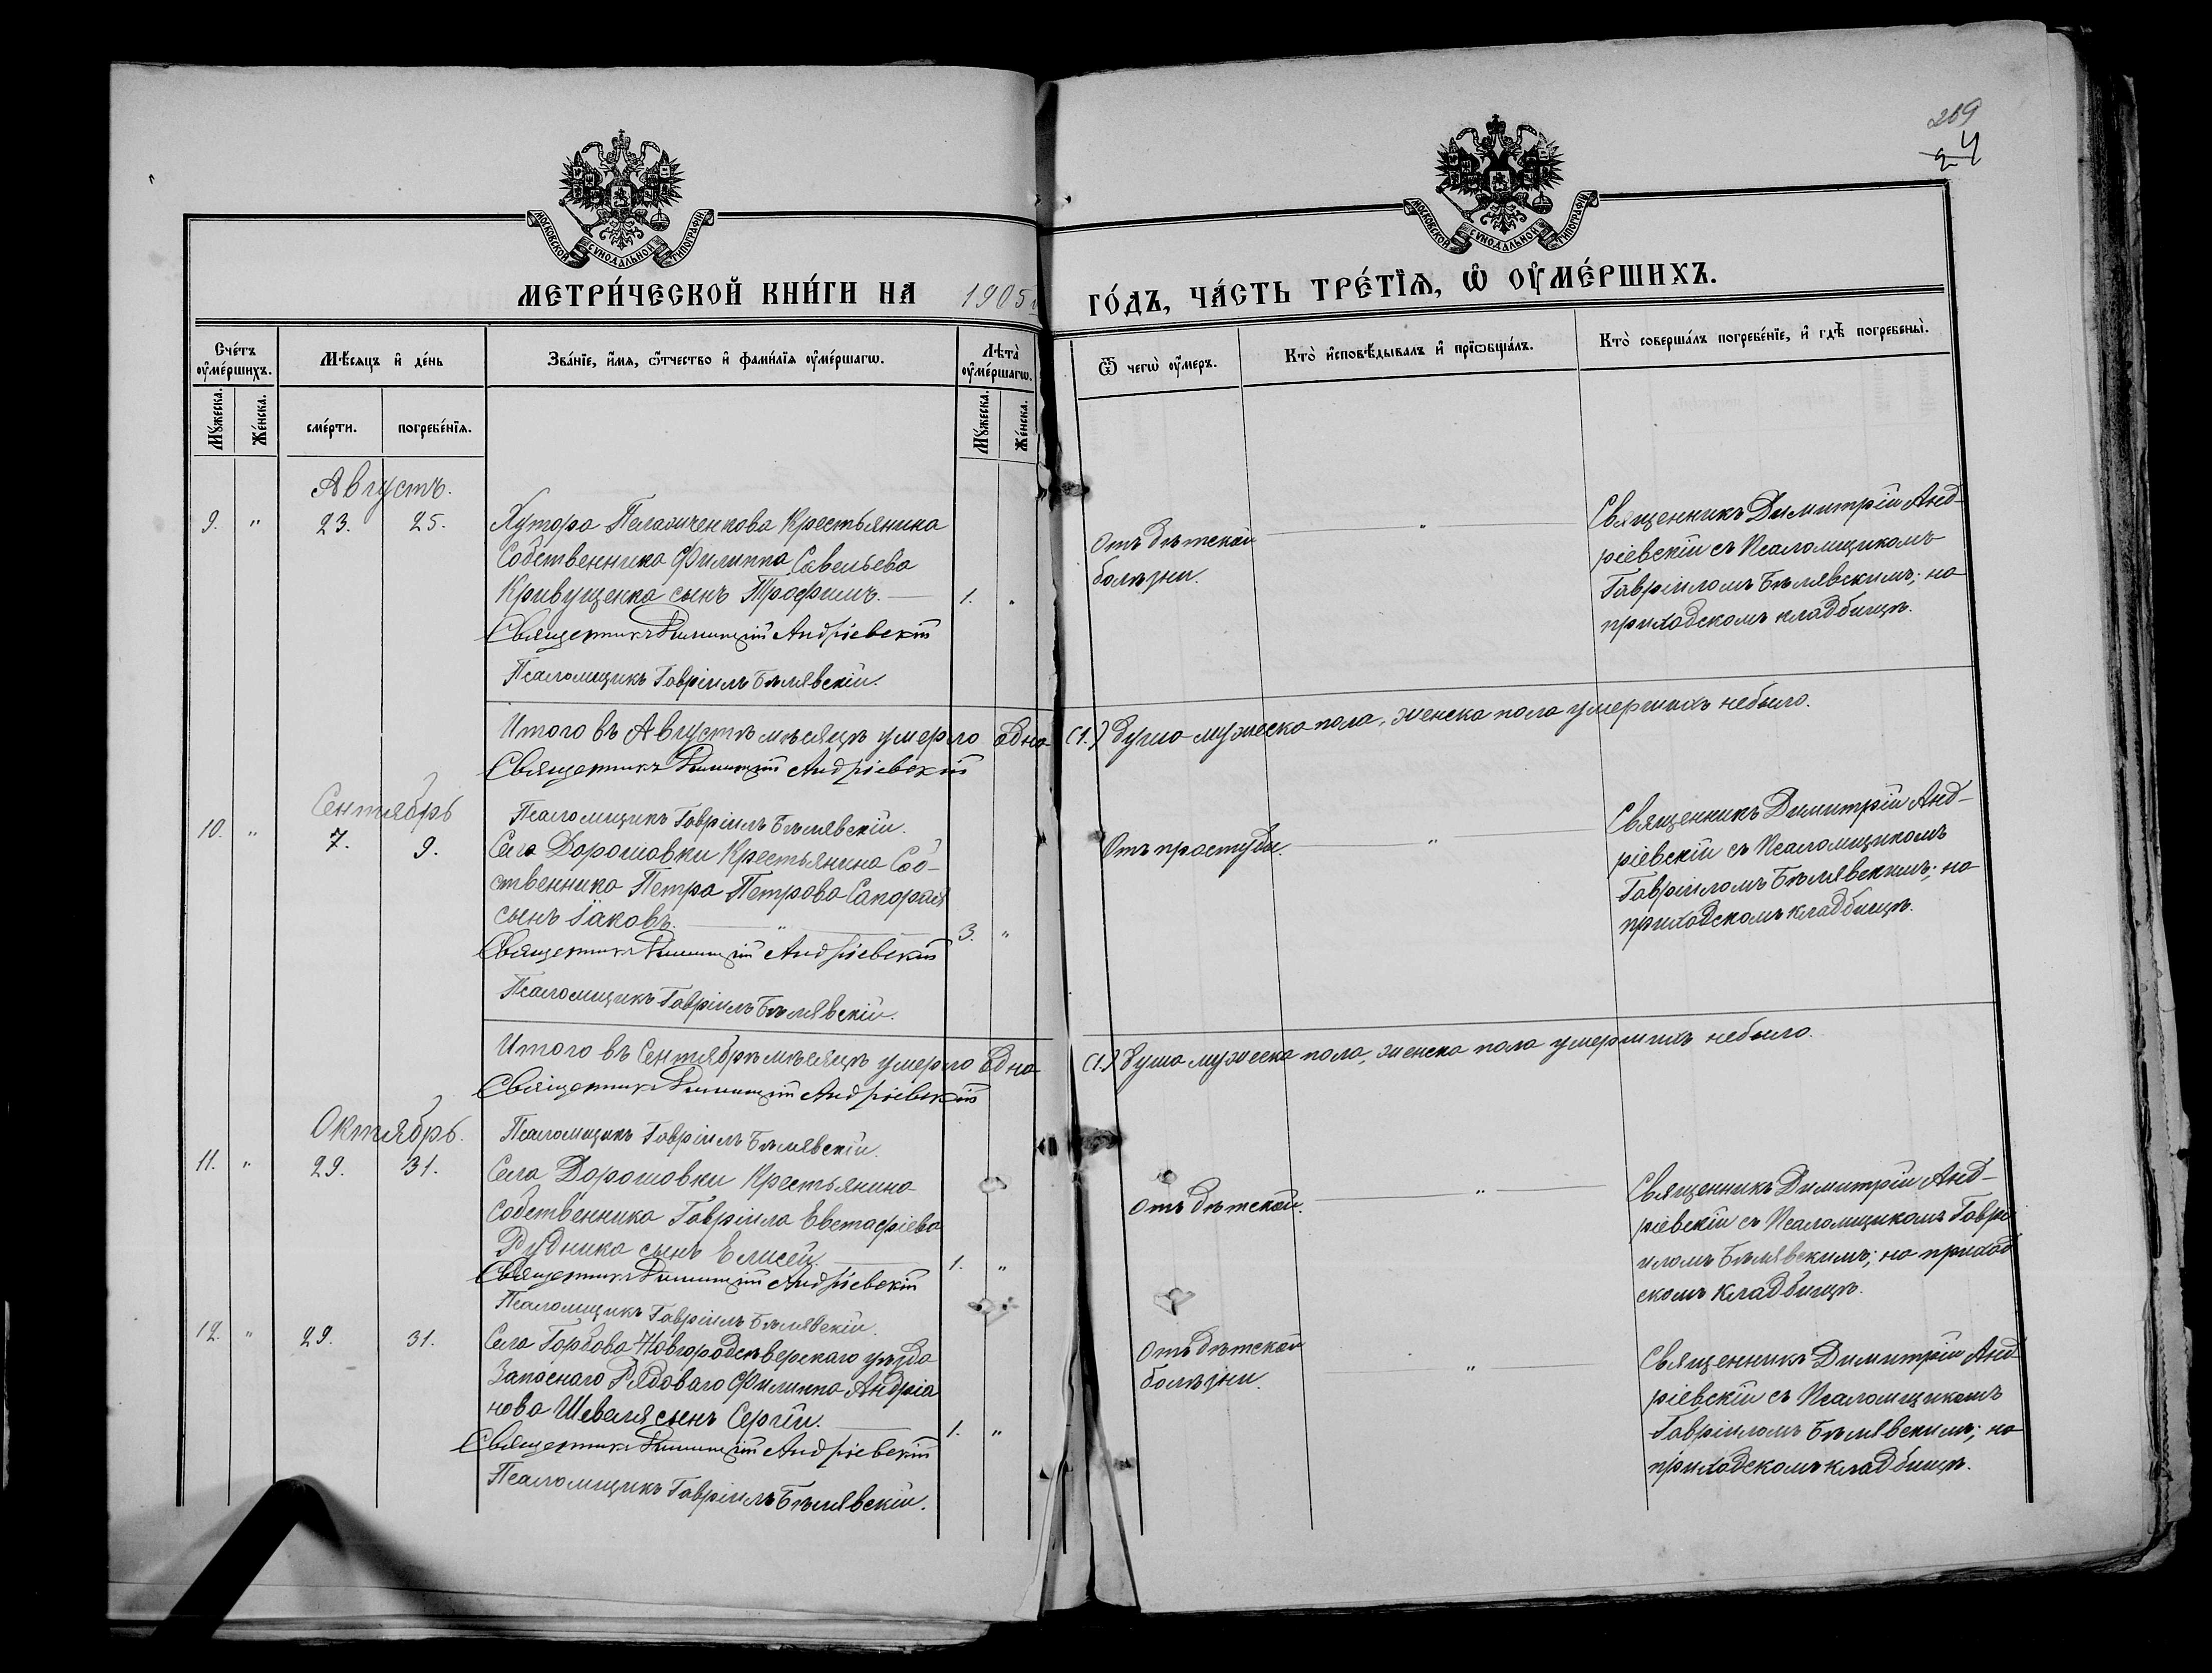 209
24
МОСКОВСКОЙ СѴНОДАЛЬНОЙ ТИПОГРАФІИ
МОСКОВСКОЙ СѴНОДАЛЬНОЙ ТИПОГРАФІИ
МЕТРИ́ЧЕСКОЙ КНИ́ГИ НА 1905 ГО́ДЪ, ЧА́СТЬ ТРЕ́ТЇѦ, Ѡ҆ ОУ҆МЕ́РШИХЪ.
Сче́тъ оу҆ме́ршихъ.
Мꙋ́жеска.
Же́нска.
Мѣ́сѧцъ и҆ де́нь
сме́рти.
погребе́нїѧ.
Зва́нїе, и҆́мѧ, ѻ҆́тчество и҆ фами́лїѧ оу҆ме́ршагѡ.
Лѣ́та оу҆ме́ршагѡ.
Мꙋ́жеска.
Же́нска.
Ѿ чегѡ̀ оу҆́меръ.
Кто̀ и҆сповѣ́дывалъ и҆ прїѡбща́лъ.
Кто̀ соверша́лъ погребе́нїе, и҆ гдѣ̀ погребены̀.
Августъ.
9. " 23. 25.
Хутора Крестьянина
Собственника Филиппа Савельева
Кривущенка сынъ Трофимъ. 1. "
Священникъ Димитрій Андріевскій
Псаломщикъ Гавріилъ Бѣлявскій.
Отъ дѣтской
болѣзни.
"
Священникъ Димитрій Анд-
ріевскій съ Псаломщикомъ
Гавріиломъ Бѣлявскимъ; на
приходскомъ кладбищѣ.
Итого въ Августѣ мѣсяцѣ умерло одна (1.) душа мужеска пола, женска пола умершихъ небыло.
Священникъ Димитрій Андріевскій
Псаломщикъ Гавріилъ Бѣлявскій.
Сентябрь
10. " 7. 9.
Села Дорошовки Крестьянина Соб-
ственника Петра Петрова
сынъ Іаковъ. " 3. "
Священникъ Димитрій Андріевскій
Псаломщикъ Гавріилъ Бѣлявскій.
Отъ простуды.
"
Священникъ Димитрій Анд-
ріевскій съ Псаломщикомъ
Гавріиломъ Бѣлявскимъ; на
приходскомъ кладбищѣ.
Итого въ Сентябрѣ мѣсяцѣ умерло одна (1.) душа мужеска пола, женска пола умершихъ небыло.
Священникъ Димитрій Андріевскій
Псаломщикъ Гавріилъ Бѣлявскій.
Октябрь.
11. " 29. 31.
Села Дорошовки Крестьянина
Собственника Гавріила Евстафіева
Рудника сынъ Елисей. 1. "
Священникъ Димитрій Андріевскій
Псаломщикъ Гавріилъ Бѣлявскій.
Отъ дѣтской.
"
Священникъ Димитрій Анд-
ріевскій съ Псаломщикомъ Гаврі
иломъ Бѣлявскимъ; на приход
скомъ кладбищѣ.
12. " 29. 31.
Села Горбова Новгородсѣверскаго уѣзда
Запаснаго Рядоваго Филиппа Андріа
нова Шевеля сынъ Сергій. 1. "
Священникъ Димитрій Андріевскій
Псаломщикъ Гавріилъ Бѣлявскій.
Отъ дѣтской
болѣзни.
"
Священникъ Димитрій Анд
ріевскій съ Псаломщикомъ
Гавріиломъ Бѣлявскимъ; на
приходскомъ кладбищѣ.